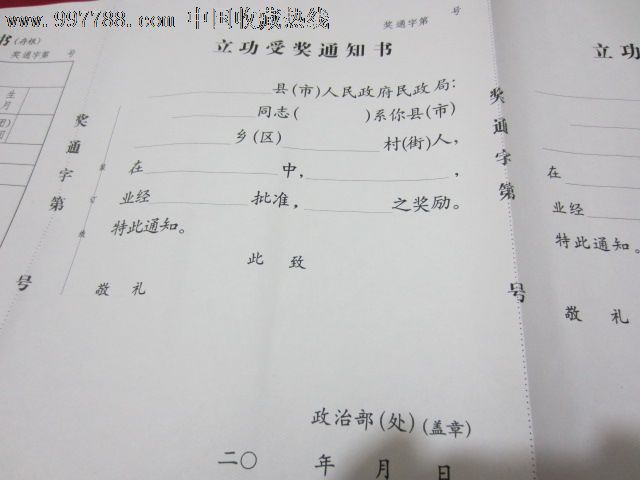 www.997788.com 中国收藏热线
书(存根)
奖通字第 号
生
月
奖通字第 号
装订线
奖通字第 号
立功受奖通知书
县(市)人民政府民政局:
同志( )系你县(市)
乡(区) 村(街)人,
在 中, ,
业经 批准, 之奖励。
特此通知。
此 致
敬 礼
政治部(处)(盖章)
二〇 年 月 日
奖通字第 号
立功
在
业经
特此通知。
敬 礼